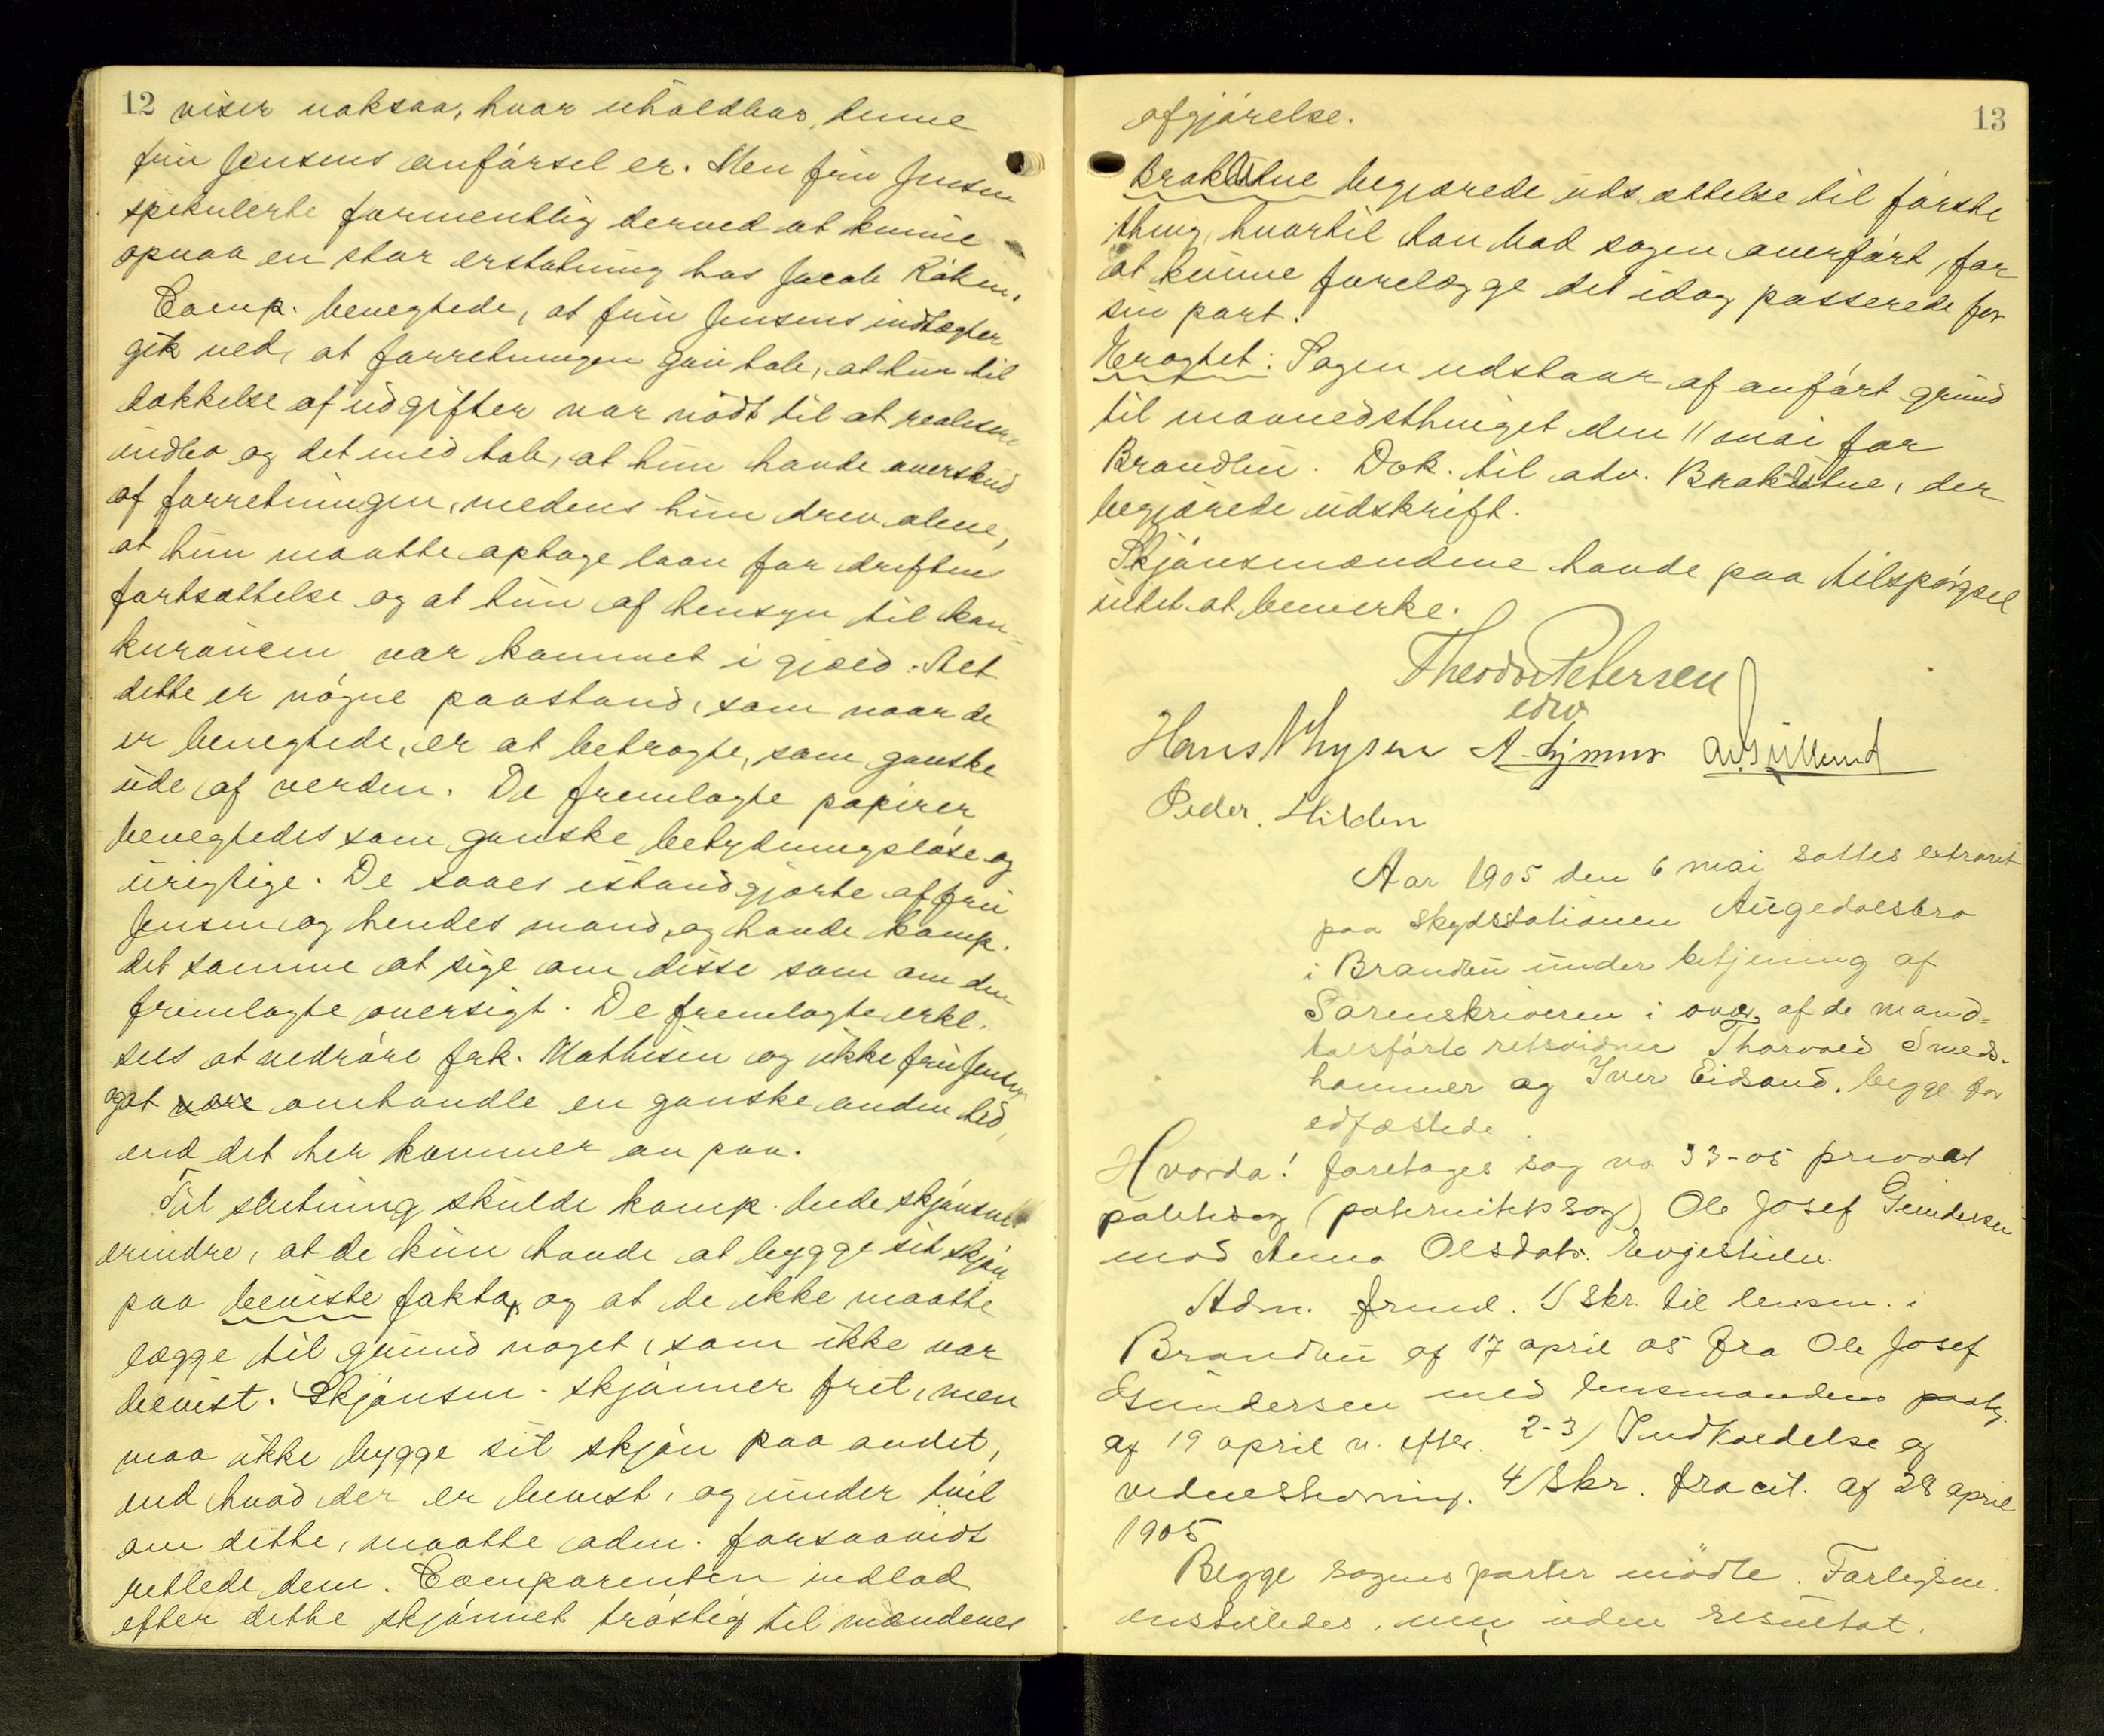 12 viser noksaa, hvor uholdbar denne
fru Jensens anførsel er. Men fru Jensen
spekulerte formentlig derved at kunne
opnaa en stor erstatning hos Jacob Røken.
Comp. benegtede, at fru Jensens indtægter
gik ned, at forretningen gav tab, at hun til
dækkelse af udgifter var nødt til at realisere
indbo og det med tab, at hun havde overskud
af forretningen, medens hun drev alene,
at hun maatte optage laan for driftens
fortsættelse og at hun af hensyn til kon-
kurancen var kommet i gjæld. Alt
dette er nøgne paastand, som naar de
er benegtede, er at betragte, som ganske
ude af verden. De fremlagte papirer
benegtedes som ganske betydningsløse og
urigtige. De saaes istandgjorte af fru
Jensen og hendes mand, og havde komp.
det samme at sige om disse som om den
fremlagte oversigt. De fremlagte erkl.
sees at vedrøre frk. Mathisen og ikke fru Jensen
og at omhandle en ganske anden tid,
end det her kommer an paa.
Til slutning skulde komp. bede skjønsm.
erindre, at de kun havde at bygge sit skjøn
paa beviste fakta, og at de ikke maatte
lægge til grund noget, som ikke var
bevist. Skjønsm. skjønner frit, men
maa ikke bygge sit skjøn paa andet,
end hvad der er bevist, og under tvil
om dette, maatte adm. forsaavidt
retlede dem. Comparenten indlod
efter dette skjønnet trøstig til mændenes
13
afgjørelse.
Brakstue begjærede udsættelse til første
thing, hvortil han bad sagen overført, for
at kunne forelægge det idag passerede for
sin part.
Eragtet: Sagen udstaar af anført grund
til maanedsthinget den 11 mai for
Brandbu. Dok. til adv. Brakstue, der
begjærede udskrift.
Skjønsmændene havde paa tilspørgsel
intet at bemerke.
Theodor Petersen
edv
Hans Thysen A. Lynner
Peder Hilden
Aar 1905 den 6 mai sattes extraret
paa skydsstationen Augedalsbro
i Brandbu under betjening af
Sorenskriveren i overv. af de mand-
talsførte retsvidner Thorvald Smeds-
hammer og Iver Eidsand, begge for
edfæstede.
Hvorda! foretages sag no 33-05 privat
politisag (paternitetssag) Ole Josef Gundersen
mod Anna Olsdatr.
Adm. freml. 1/ Skr. til lensm. i
Brandbu af 17 april 05 fra Ole Josef
Gundersen med lensmandens paateg.
af 19 april n. efter. 2-3/ Indkaldelse og
vidnestevning. 4/ Skr. fra cit. af 28 april
1905
Begge sagens parter mødte. Forligsm.
anstilledes, men uden resultat.